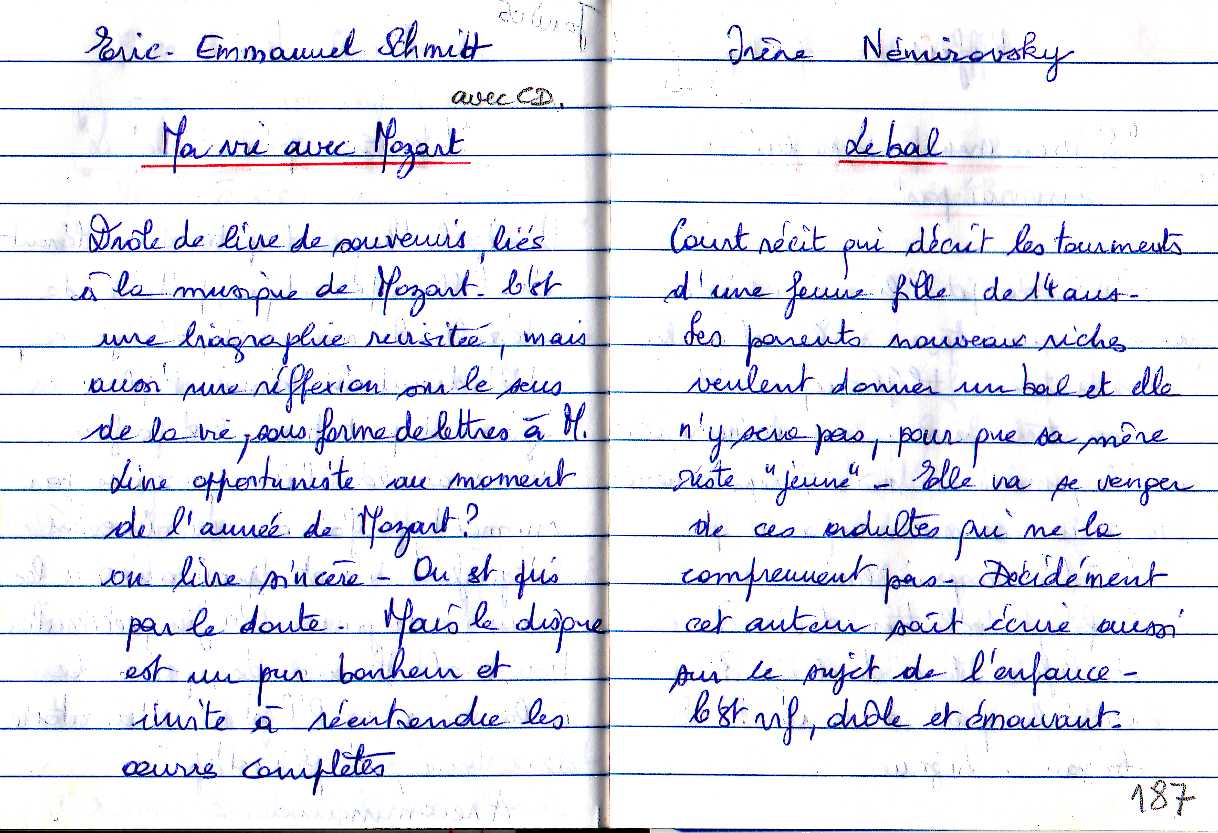 Eric-Emmanuel Schmitt
avec CD.
Ma vie avec Mozart
Drôle de livre de souvenirs, liés
à la musique de Mozart. C'est
une biographie revisitée, mais
aussi une réflexion sur le sens
de la vie, sous forme de lettres à M.
Livre opportuniste au moment
de l'année de Mozart?
ou livre sincère - On est pris
par le doute. Mais le disque
est un pur bonheur et
invite à réentendre les
œuvres complètes
Irène Némirovsky
Le bal
Court récit qui décrit les tourments
d'une jeune fille de 14 ans-
Ses parents nouveaux riches
veulent donner un bal et elle
n'y sera pas, pour que sa mère
reste "jeune" - Elle va se venger
de ces adultes qui ne la
comprennent pas - Décidément
cet auteur sait écrire aussi
sur le sujet de l'enfance -
C'est vif, drôle et émouvant.
187